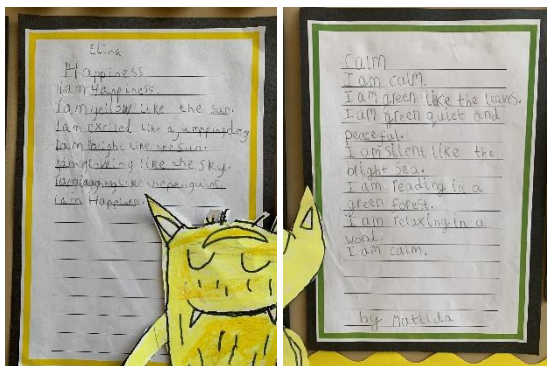 Elina
Happiness
I am Happiness.
I am yellow like the sun.
I am excited like a jumping dog
I am bright like the sun.
I am glowing like the sky.
I am like the penguin
I am Happines.
Calm
I am calm.
I am green like the leaves.
I am green quiet and
peaceful.
I am silent like the
bright sea.
I am reading in a
green forest.
I am relaxing in a
I am calm.
by Matilda